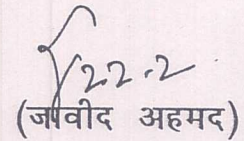 22.2
(जावीद अहमद)